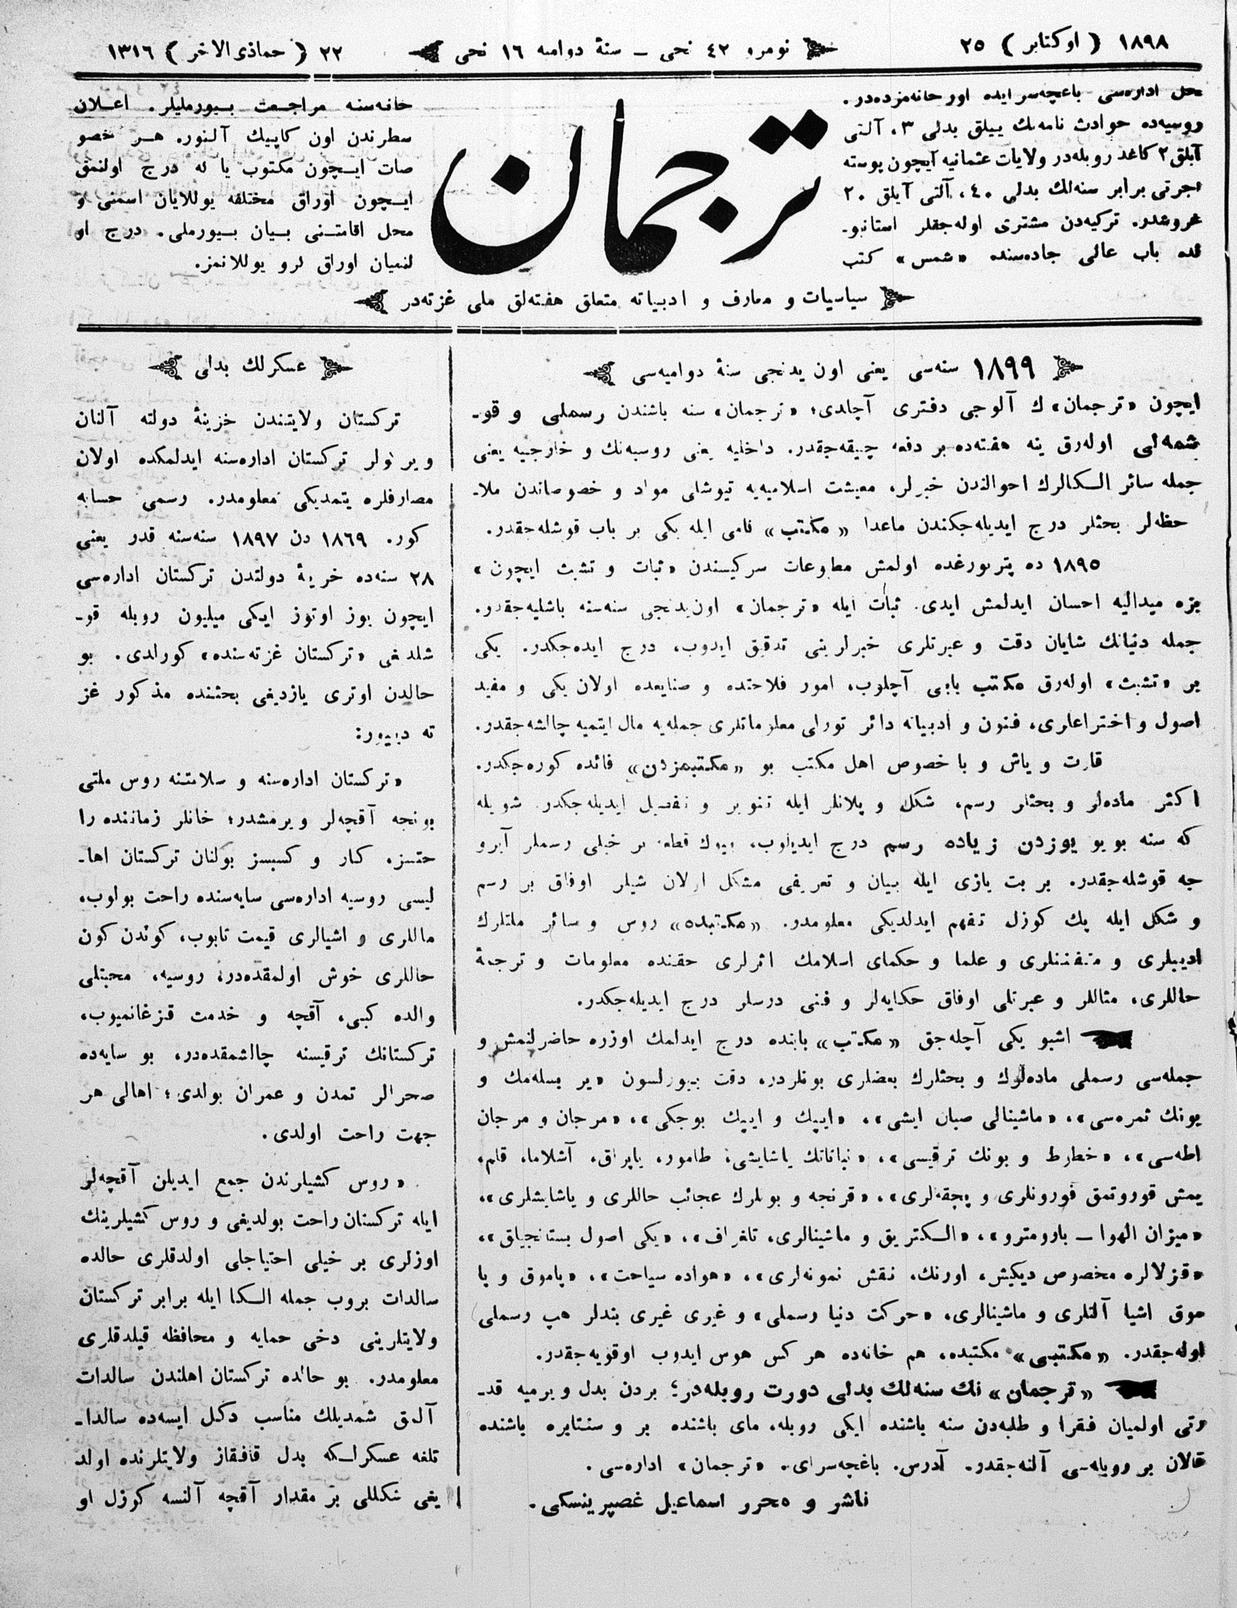 ١٨٩٨ ( اوكتابر ) ٢٥
نومرو ٤٢ نجی ـ سنهٔ دوامیه ١٦ نجی
٢٢ ( جماذی الاخر ) ١٣١٦
محل اداره‌سی باغچه‌سرایده اورخانه‌مزده‌در.
روسیه‌ده حوادث نامه‌نك ییلق بدلی ٣، آلتی
آیلق ٢ كاغد روبله‌در ولایات عثمانیه ایچون پوسته
اجرتی برابر سنه‌لك بدلی ٤٠، آلتی آیلق ٢٠
غروشدر. تركیه‌دن مشتری اوله‌جقلر استانبو-
لده باب عالی جاده‌سنده «شمس» كتب
ترجمان
خانه‌سنه مراجعت بیورملیلر. اعلان
سطرندن اون كاپیك آلنور. هر خصو
صات ایچون مكتوب یا له درج اولنمق
ایچون اوراق مختلفه یوللایان اسمنی و
محل اقامتنی بیان بیورملی. درج او
لنمیان اوراق گرو یوللانمز.
سیاسیات و معارف و ادبیاته متعلق هفته‌لق ملی غزته‌در
١٨٩٩ سنه‌سی یعنی اون یدنجی سنهٔ دوامیه‌سی
ایچون «ترجمان»ك آلوجی دفتری آچلدی؛ «ترجمان» سنه باشندن رسملی و قو-
شمه‌لی اوله‌رق ینه هفته‌ده بر دفعه چیقه‌جقدر. داخلیه یعنی روسیه‌نك و خارجیه یعنی
جمله سائر الكالرك احوالندن خبرلر، معیشت اسلامیه‌یه تیوشلی مواد و خصوصاتدن ملا-
حظه‌لر بحثلر درج ایدیله‌جكندن ماعدا «مكتب» نامی ایله یكی بر باب قوشله‌جقدر.
١٨٩٥ ده پتربورغده اولمش مطبوعات سركیسندن «ثبات و تشبث ایچون»
بزه میدالیه احسان ایدلمش ایدی. ثبات ایله «ترجمان» اون‌یدنجی سنه‌سنه باشلیه‌جقدر.
جمله دنیانك شایان دقت و عبرتلری خبرلرینی تدقیق ایدوب، درج ایده‌جكدر. یكی
بر «تشبث» اوله‌رق مكتب بابی آچلوب، امور فلاحتده و صنایعده اولان یكی و مفید
اصول و اختراعلری، فنون و ادبیاته دائر تورلی معلوماتلری جمله‌یه مال ایتمیه چالشه‌جقدر.
قارت و یاش و با خصوص اهل مكتب بو «مكتبمزدن» فائده كوره‌جكدر.
اكثر ماده‌لر و بحثلر رسم، شكل و پلانلر ایله تنویر و تفصیل ایدیله‌جكدر. شویله
كه سنه بویو یوزدن زیاده رسم درج ایدیلوب، بیوك قطعه بر خیلی رسملر آیرو
جه قوشله‌جقدر. بر بت یازی ایله بیان و تعریفی مشكل اولان شیلر اوفاق بر رسم
و شكل ایله پك كوزل تفهم ایدلدیكی معلومدر. «مكتبده» روس و سائر ملتلرك
ادیبلری و متفننلری و علما و حكمای اسلامك اثرلری حقنده معلومات و ترجمهٔ
حاللری، مثاللر و عبرتلی اوفاق حكایه‌لر و فنی درسلر درج ایدیله‌جكدر.
اشبو یكی آچله‌جق «مكتب» بابنده درج ایدلمك اوزره حاضرلنمش و
جمله‌سی رسملی ماده‌لرك و بحثلرك بعضلری بونلردر، دقت بیورلسون «یر بسله‌مك و
بونك ثمره‌سی»، «ماشینالی صبان ایشی»، «ایپك و ایپك بوجكی»، «مرجان و مرجان
اطه‌سی»، «خطارط و بونك ترقیسی»، «نباتاتك یاشایشی، طامور، یاپراق، آشلاما، قلم،
یمش قوروتمق فورونلری و پچقه‌لری»، «قرنجه و بونلرك عجائب حاللری و یاشایشلری»،
«میزان الهوا ـ بارومترو»، «الكتریق و ماشینالری، تلغراف»، «یكی اصول بستانجیلق»،
«قزلالره مخصوص دیكیش، اورنك، نقش نمونه‌لری»، «هواده سیاحت»، «پاموق و پا
موق اشیا آلتلری و ماشینالری، «حركت دنیا رسملی» و غیری غیری بندلر هپ رسملی
اوله‌جقدر. «مكتبی» مكتبده، هم خانه‌ده هر كس هوس ایدوب اوقویه‌جقدر.
«ترجمان» نك سنه‌لك بدلی دورت روبله‌در؛ بردن بدل و یرمیه قد-
رتی اولمیان فقرا و طلبه‌دن سنه باشنده ایكی روبله، مای باشنده بر و سنتابره باشنده
قالان بر روبله‌سی آلنه‌جقدر. آدرس. باغچه‌سرای. «ترجمان» اداره‌سی.
ناشر و محرر اسماعیل غصپرینسكی.
عسكرلك بدلی
تركستان ولایتندن خزینهٔ دولته آلنان
ویركولر تركستان اداره‌سنه ایدلمكده اولان
مصارفلره یتمدیكی معلومدر. رسمی حسابه
كوره ١٨٦٩ دن ١٨٩٧ سنه‌سنه قدر یعنی
٢٨ سنه‌ده خزینهٔ دولتدن تركستان اداره‌سی
ایچون یوز اوتوز ایكی میلیون روبله قو-
شلدغی «تركستان غزته‌سنده» كورلدی. بو
حالدن اوتری یازدیغی بحثنده مذكور غز
ته دییور:
«تركستان اداره‌سنه و سلامتنه روس ملتی
بونجه آقچه‌لر ویرمشدر؛ خانلر زماننده را
حتسز، كار و كسبسز بولنان تركستان اها-
لیسی روسیه اداره‌سی سایه‌سنده راحت بولوب،
ماللری و اشیالری قیمت تابوب، كوندن كون
حاللری خوش اولمقده‌در، روسیه، محبتلی
والده كبی، آقچه و خدمت قزغانمیوب،
تركستانك ترقیسنه چالشمقده‌در، بو سایه‌ده
صحرالر تمدن و عمران بولدی؛ اهالی هر
جهت راحت اولدی.
«روس كشیلرندن جمع ایدیلن آقچه‌لر
ایله تركستان راحت بولدیغی و روس كشیلرینك
اوزلری بر خیلی احتیاجلی اولدقلری حالده
سالدات یروب جمله الكا ایله برابر تركستان
ولایتلرینی دخی حمایه و محافظه قیلدقلری
معلومدر. بو حالده تركستان اهلندن سالدات
آلمق شمدیلك مناسب دكل ایسه‌ده سالدا-
تلغه عسكرلكه بدل قافقاز ولایتلرنده اولد
یغی شكللی بر مقدار آقچه آلنسه كوزل او